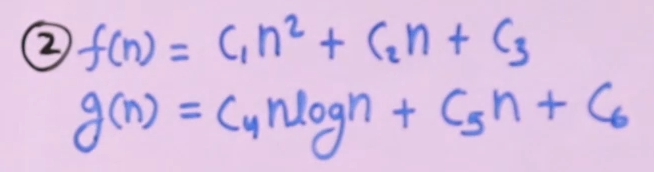 ② f(n) = C₁n² + C₂n + C₃
g(n) = C₄nlogn + C₅n + C₆